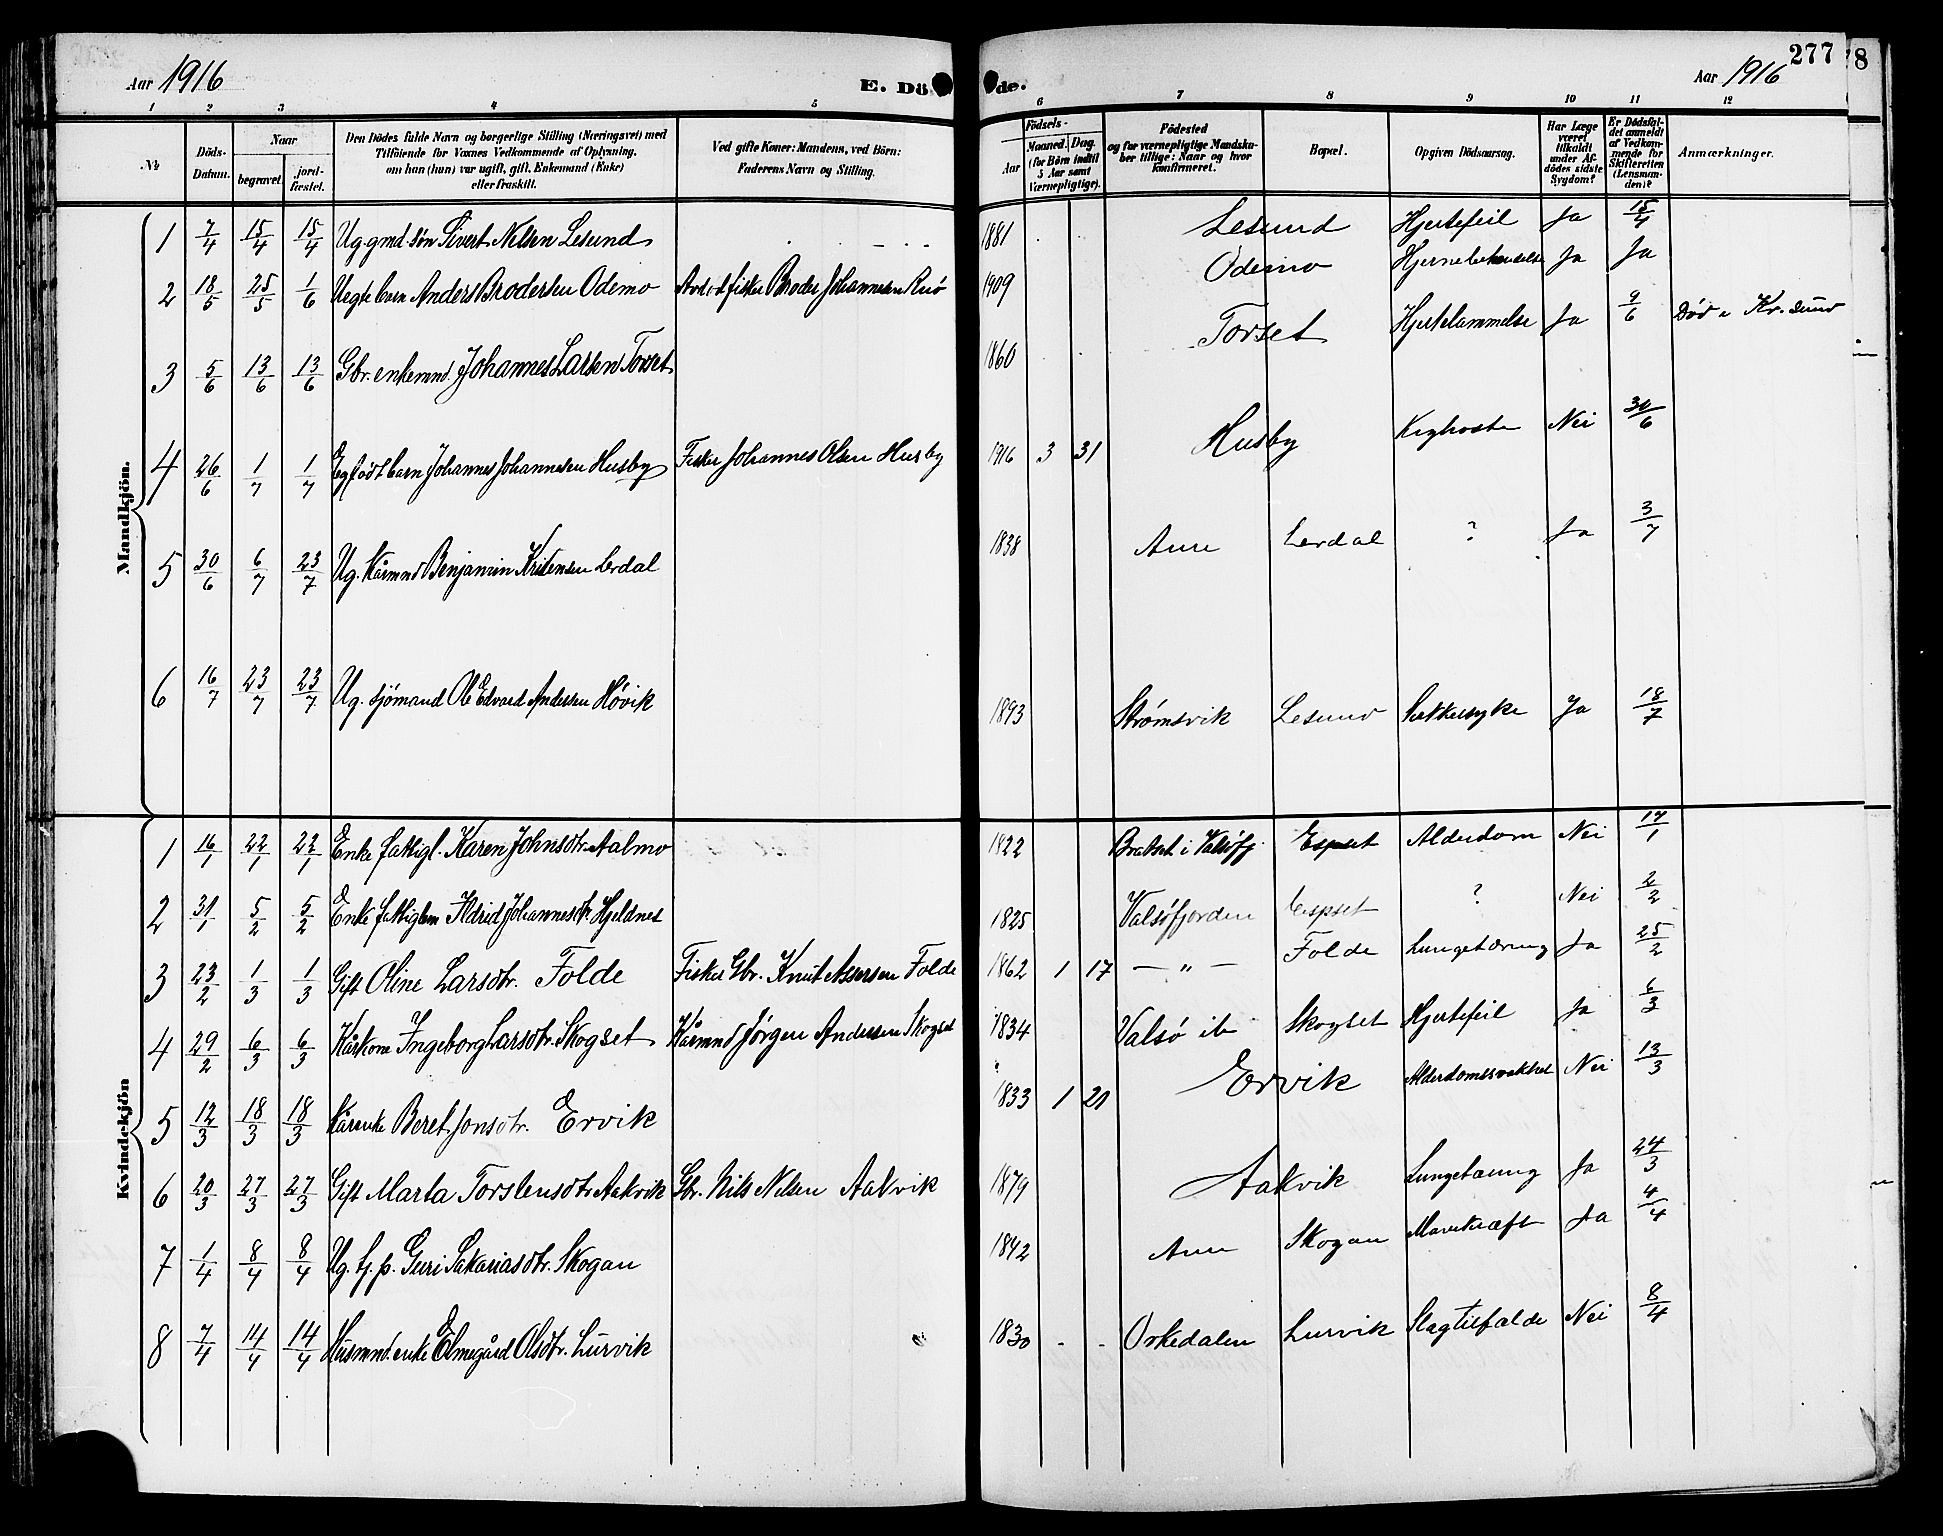 Aar 1916
E. Dö
de.
Aar 1916
277
8
1 2 3 4 5 6 7 8 9 10 11 12
No
Döds-Datum.
Naar
begravet.
jord-fæstet.
Den Dödes fulde Navn og borgerlige Stilling (Næringsvei) med
Tilföiende for Voxnes Vedkommende af Oplysning,
om han (hun) var ugift, gift, Enkemand (Enke)
eller fraskilt.
Ved gifte Koner: Mandens, ved Börn:
Faderens Navn og Stilling.
Födsels-
Aar
Maaned.
Dag.
(for Börn indtil
5 Aar samt
Værnepligtige).
Födested
og for værnepligtige Mandska-
ber tillige: Naar og hvor
konfirmeret.
Bopæl.
Opgiven Dödsaarsag.
Har Læge
været
tilkaldt
under Af-
dödes sidste
Sygdom?
Er Dödsfal-
det anmeldt
af Vedkom-
mende for
Skifteretten
(Lensman-
den)?
Anmærkninger.
Mandkjön.
1 7/4 15/4 15/4 Ug. gmd. søn Sivert Nelsen Lesund 1881 Lesund Hjertefeil Ja 15/4
2 18/5 25/5 1/6 Uegte barn Anders Brodersen Odemo fisker Broder Johannesen 1909 Odemo Ja Ja
3 5/6 13/6 13/6 Gbr. enkemnd. Johannes Larsen Torset 1860 Torset Hjertelammelse Ja 9/6 Død i Kr. sund
4 26/6 1/7 1/7 Egfødt barn Johannes Johannesen Husby Fisker Johannes Olsen Husby 1916 3 31 Husby Kighoste Nei 30/6
5 30/6 6/7 23/7 Ug. Kårmnd Benjamin Kristensen Lerdal 1838 Aure Lerdal ? Ja 3/7
6 16/7 23/7 23/7 Ug. sjömand Ole Edvard Andersen Høvik 1893 Strømsvik Lesund Sukkersyke Ja 18/7
Kvindekjön
1 16/1 22/1 22/1 Enke fattigl. Karen Johnsdtr. Aalmo 1822 Bratset i Valsøfj. Espset Alderdom Nei 17/1
2 31/1 5/2 5/2 Enke fattiglem Ildrid Johannesdtr Hjeldnes 1825 Valsøfjorden Espset ? Nei 2/2
3 23/2 1/3 1/3 Gift Oline Larsdtr. Folde Fisker Gbr. Knut Assersen Folde 1862 1 17 — " — Folde Lungetæring Ja 25/2
4 29/2 6/3 6/3 Kårkone Ingeborg Larsdtr. Skogset Kårmnd Jørgen Andersen Skogset 1834 Valsø ib Skogset Hjertefeil Ja 6/3
5 12/3 18/3 18/3 Kårenke Beret Jonsdtr. Ervik 1833 1 21 Ervik Alderdomssvakhet Nei 13/3
6 20/3 27/3 27/3 Gift Marta Torstensdtr Aakvik Gbr. Nils Nelsen Aakvik 1879 Aakvik Lungetæring Ja 24/3
7 1/4 8/4 8/4 Ug. tj. p. Guri Sakariasdtr. Skogan 1842 Aure Skogan Mavekræft Ja 4/4
8 7/4 14/4 14/4 Husmnd. enke Elmegård Olsdtr. Lurvik 1830 Orkedalen Lurvik Slagtilfælde Nei 8/4